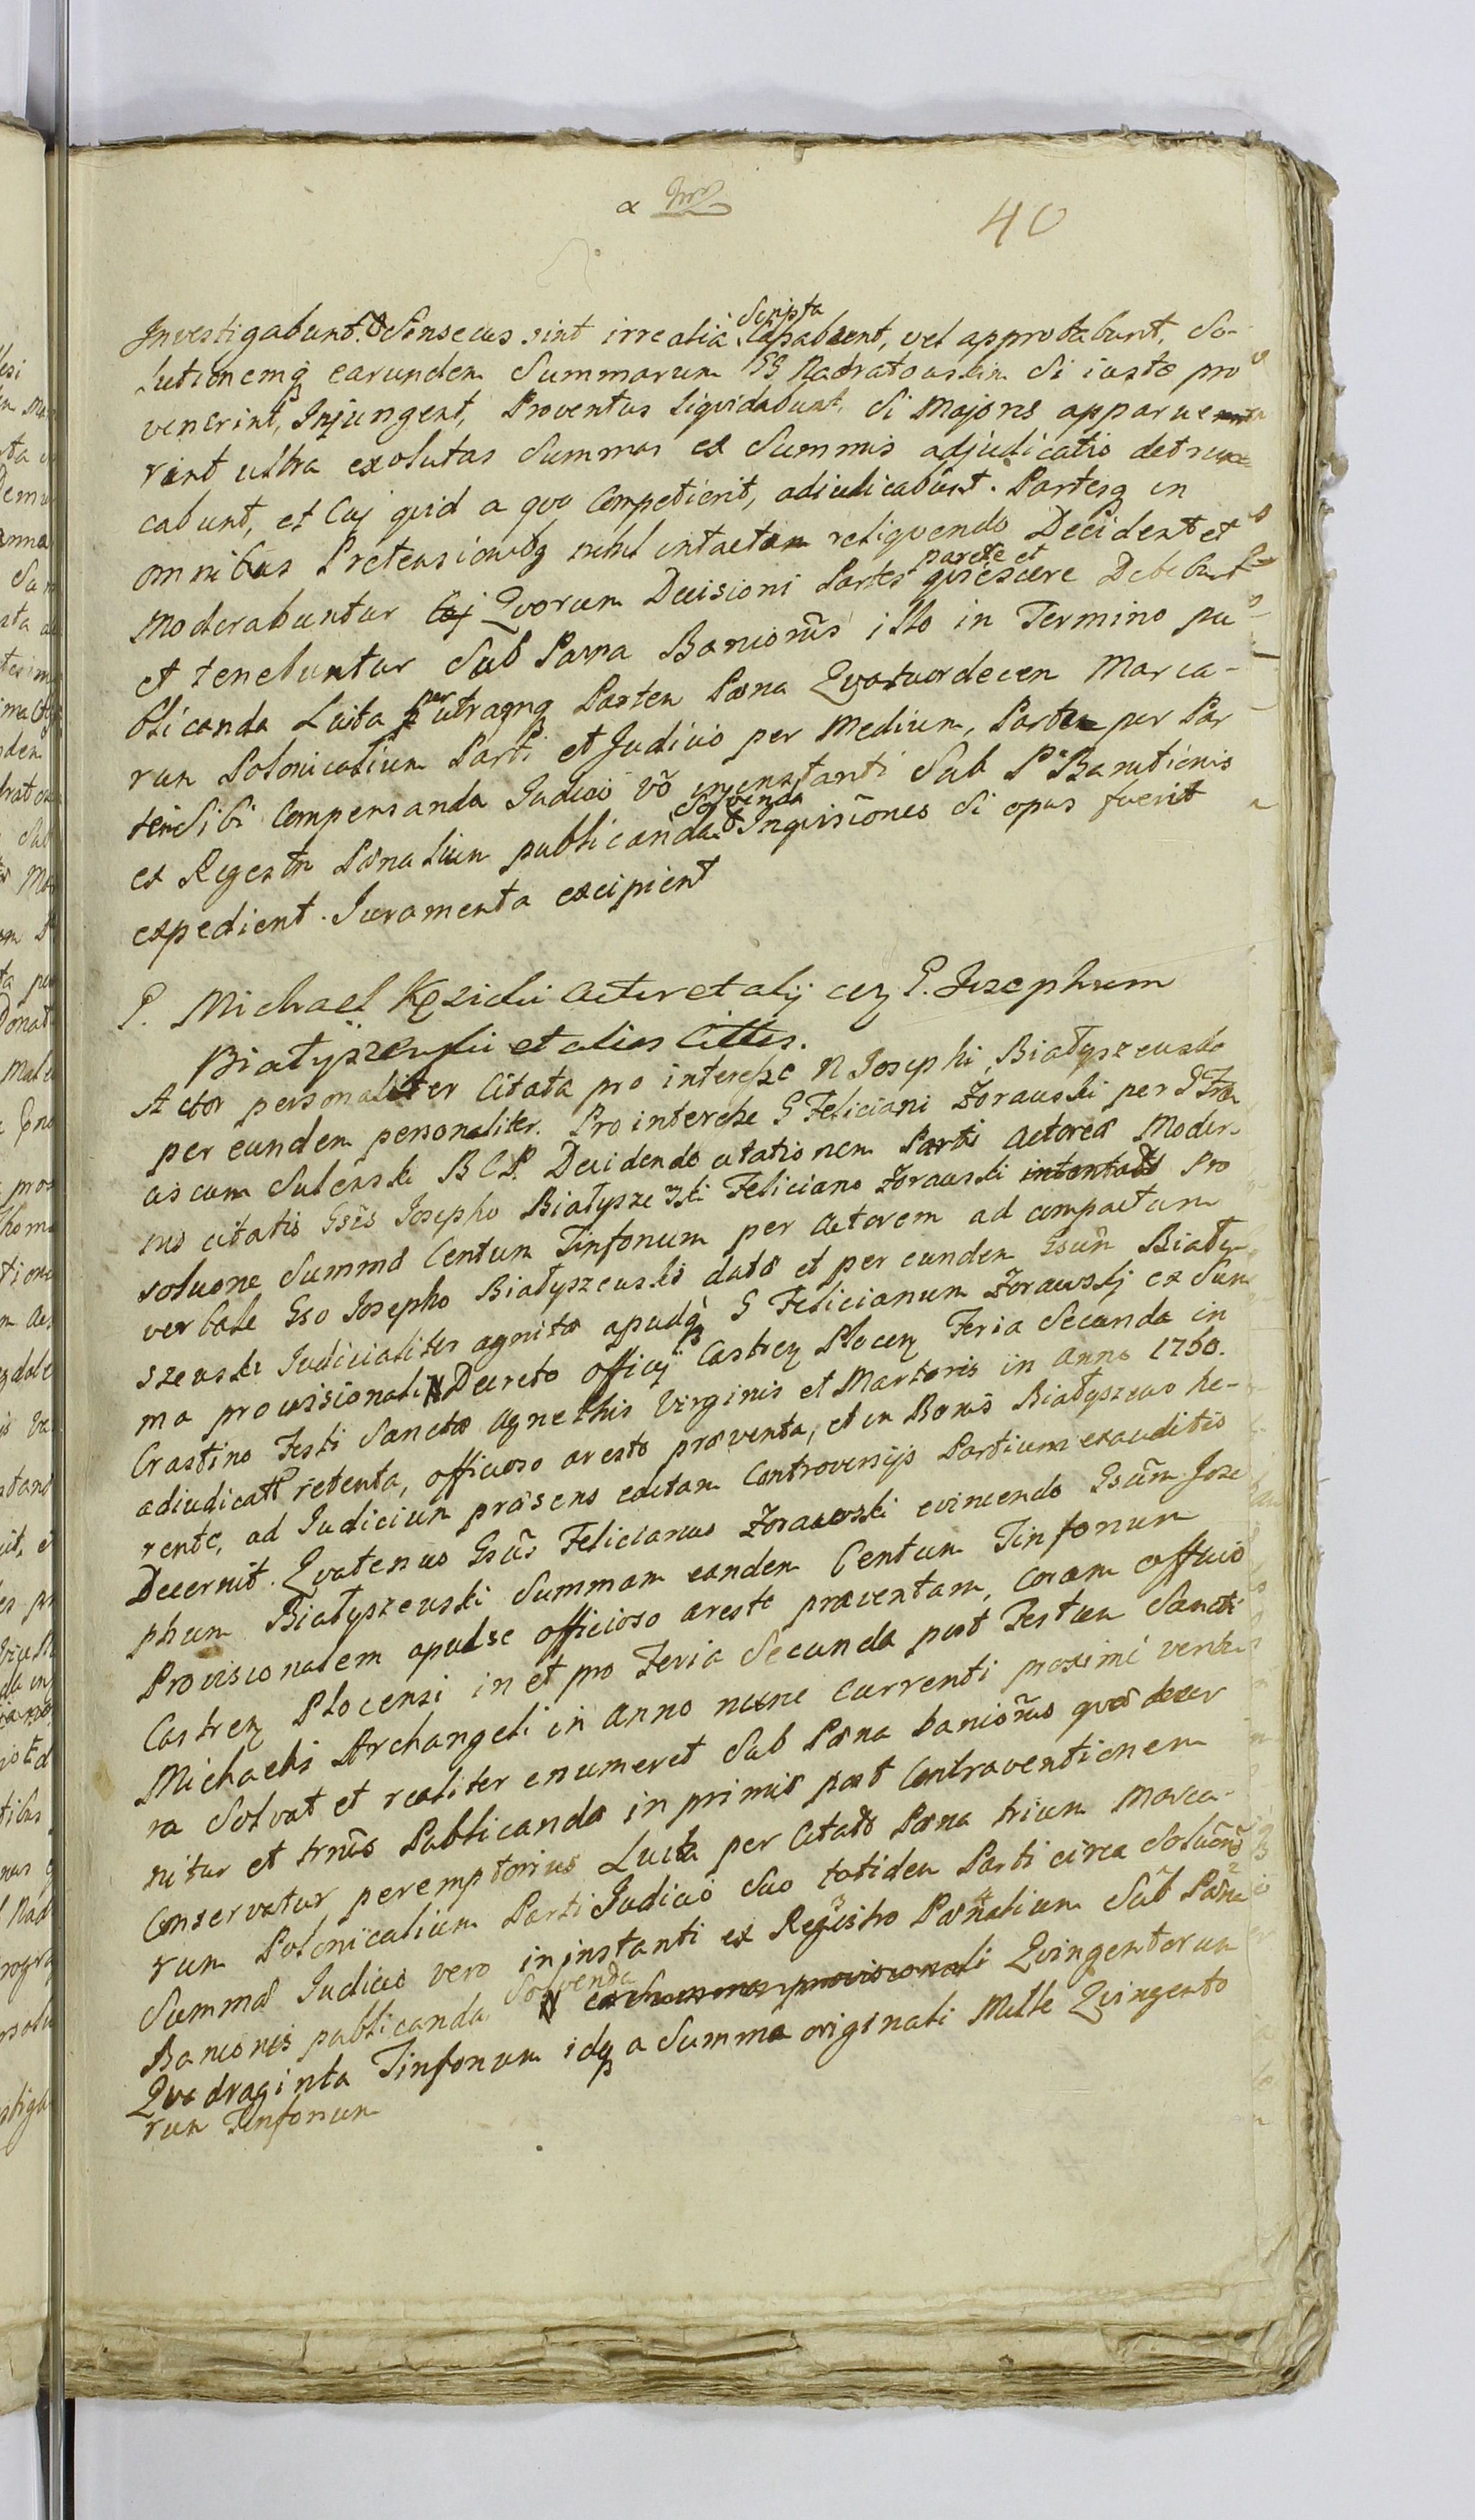 40
Investigabunt. Sensecus sint irrealia Scripta Cassabunt, vel approbabunt, So-
lutionemq earundem Summarum GG Nadratowskim Si iuste pro
venerint, Injungent, Proventus liquidabunt, Si Majores apparue
rint ultra exolutas Summas ex Summis adjudicatis detrun
cabunt, et Cuj quid a quo Competierit, adiudicabunt. Partesq in
omnibus Pretensionibq nihil intactum relinquendo Decident et
Moderabuntur Quorum Decisioni Partes parere et quiescere Debebunt
et tenebuntur Sub Pæna Banionis illo in Termino pu-
blicanda Luita per utramq Partem Pæna Quatuordecem Marca-
rum Polonicalium Parti et Judicio per Medium, Partem per Par
tem Sibi Compensanda Judicio võ in instanti Sub P Banitionis
ex Regestro Pænalium publicanda Solvenda Inquisiões Si opus fuerit
expedient. Juramenta excipient
G. Michael Kęsicki Actor et alij cuz G. Josephum
Białyszewski et alios Cittos.
Actor personaliter Citata pro interesse N Josephi Białyszewski
per eundem personaliter. Pro interesse G Feliciani Zorawski per G Fran
ciscum Sulenski B C P. Decidendo citationem Parti Actorea Moder-
nis citatis Gsis Josepho Białyszewski Feliciano Zorawski intentatã Pro
soluone Summæ Centum Tinfonum per Actorem ad compactum
verbale Gso Josepho Białyszewski datæ et per eundem Gsum Biały-
szewski Judicialiter agnitæ apudq G Felicianum Zorawskj ex Sum
ma provisionali Decreto officij Castren Plocen Feria Secunda in
Crastino Festi Sanctæ Agnethis Virginis et Martyris in Anno 1760.
adiudicata retenta, officioso aresto præventa, et in Bonis Białyszewo hæ-
rente, ad Judicium præsens eactam Controversijs Partium exauditis
Decernit. Quatenus Gsus Felicianus Zorawski evincendo Gsum Jose
phum Białyszewski Summam eandem Centum Tinfonum
Provisionalem apud se officioso aresto præventam, coram officio
Castren Plocensi in et pro Feria Secunda post Festum Sancti
Michaelis Archangeli in Anno nunc currenti proxime ventu
ra Solvat et realiter enumeret Sub Pæna banionis quæ decer
nitur et trnis Publicanda in primis post Contraventionem
Conservatur peremptorius Luita per Citatos Pæna trium Marca-
rum Polonicalium Parti Judicio Suo totidem Parti circa Soluõnem
Summæ Judicio vero in instanti ex Registro Pænalium Sub Pæna
Banionis publicanda Solvenda Quingentorum
Quadraginta Tinfonum idq a Summa originali Mille Quingento
rum Tinfonum